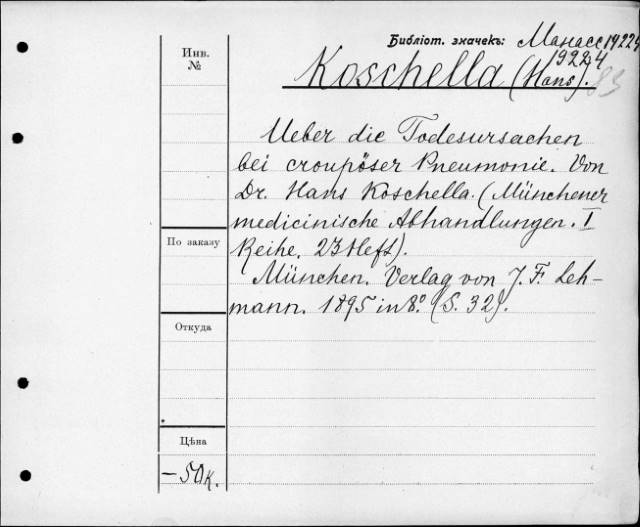 Библіот. значекъ: Манасс 19224
9224
Инв.
№
Koschella (Hans). 83
Ueber die Todesursachen
bei croupöser Pneumonie. Von
Dr. Hans Koschella. (Münchener
medicinische Abhandlungen. I
По заказу
Reihe. 23 Heft).
München. Verlag von J. F. Leh-
mann. 1895 in 8° (S. 32).
Откуда
Цѣна
—50к.